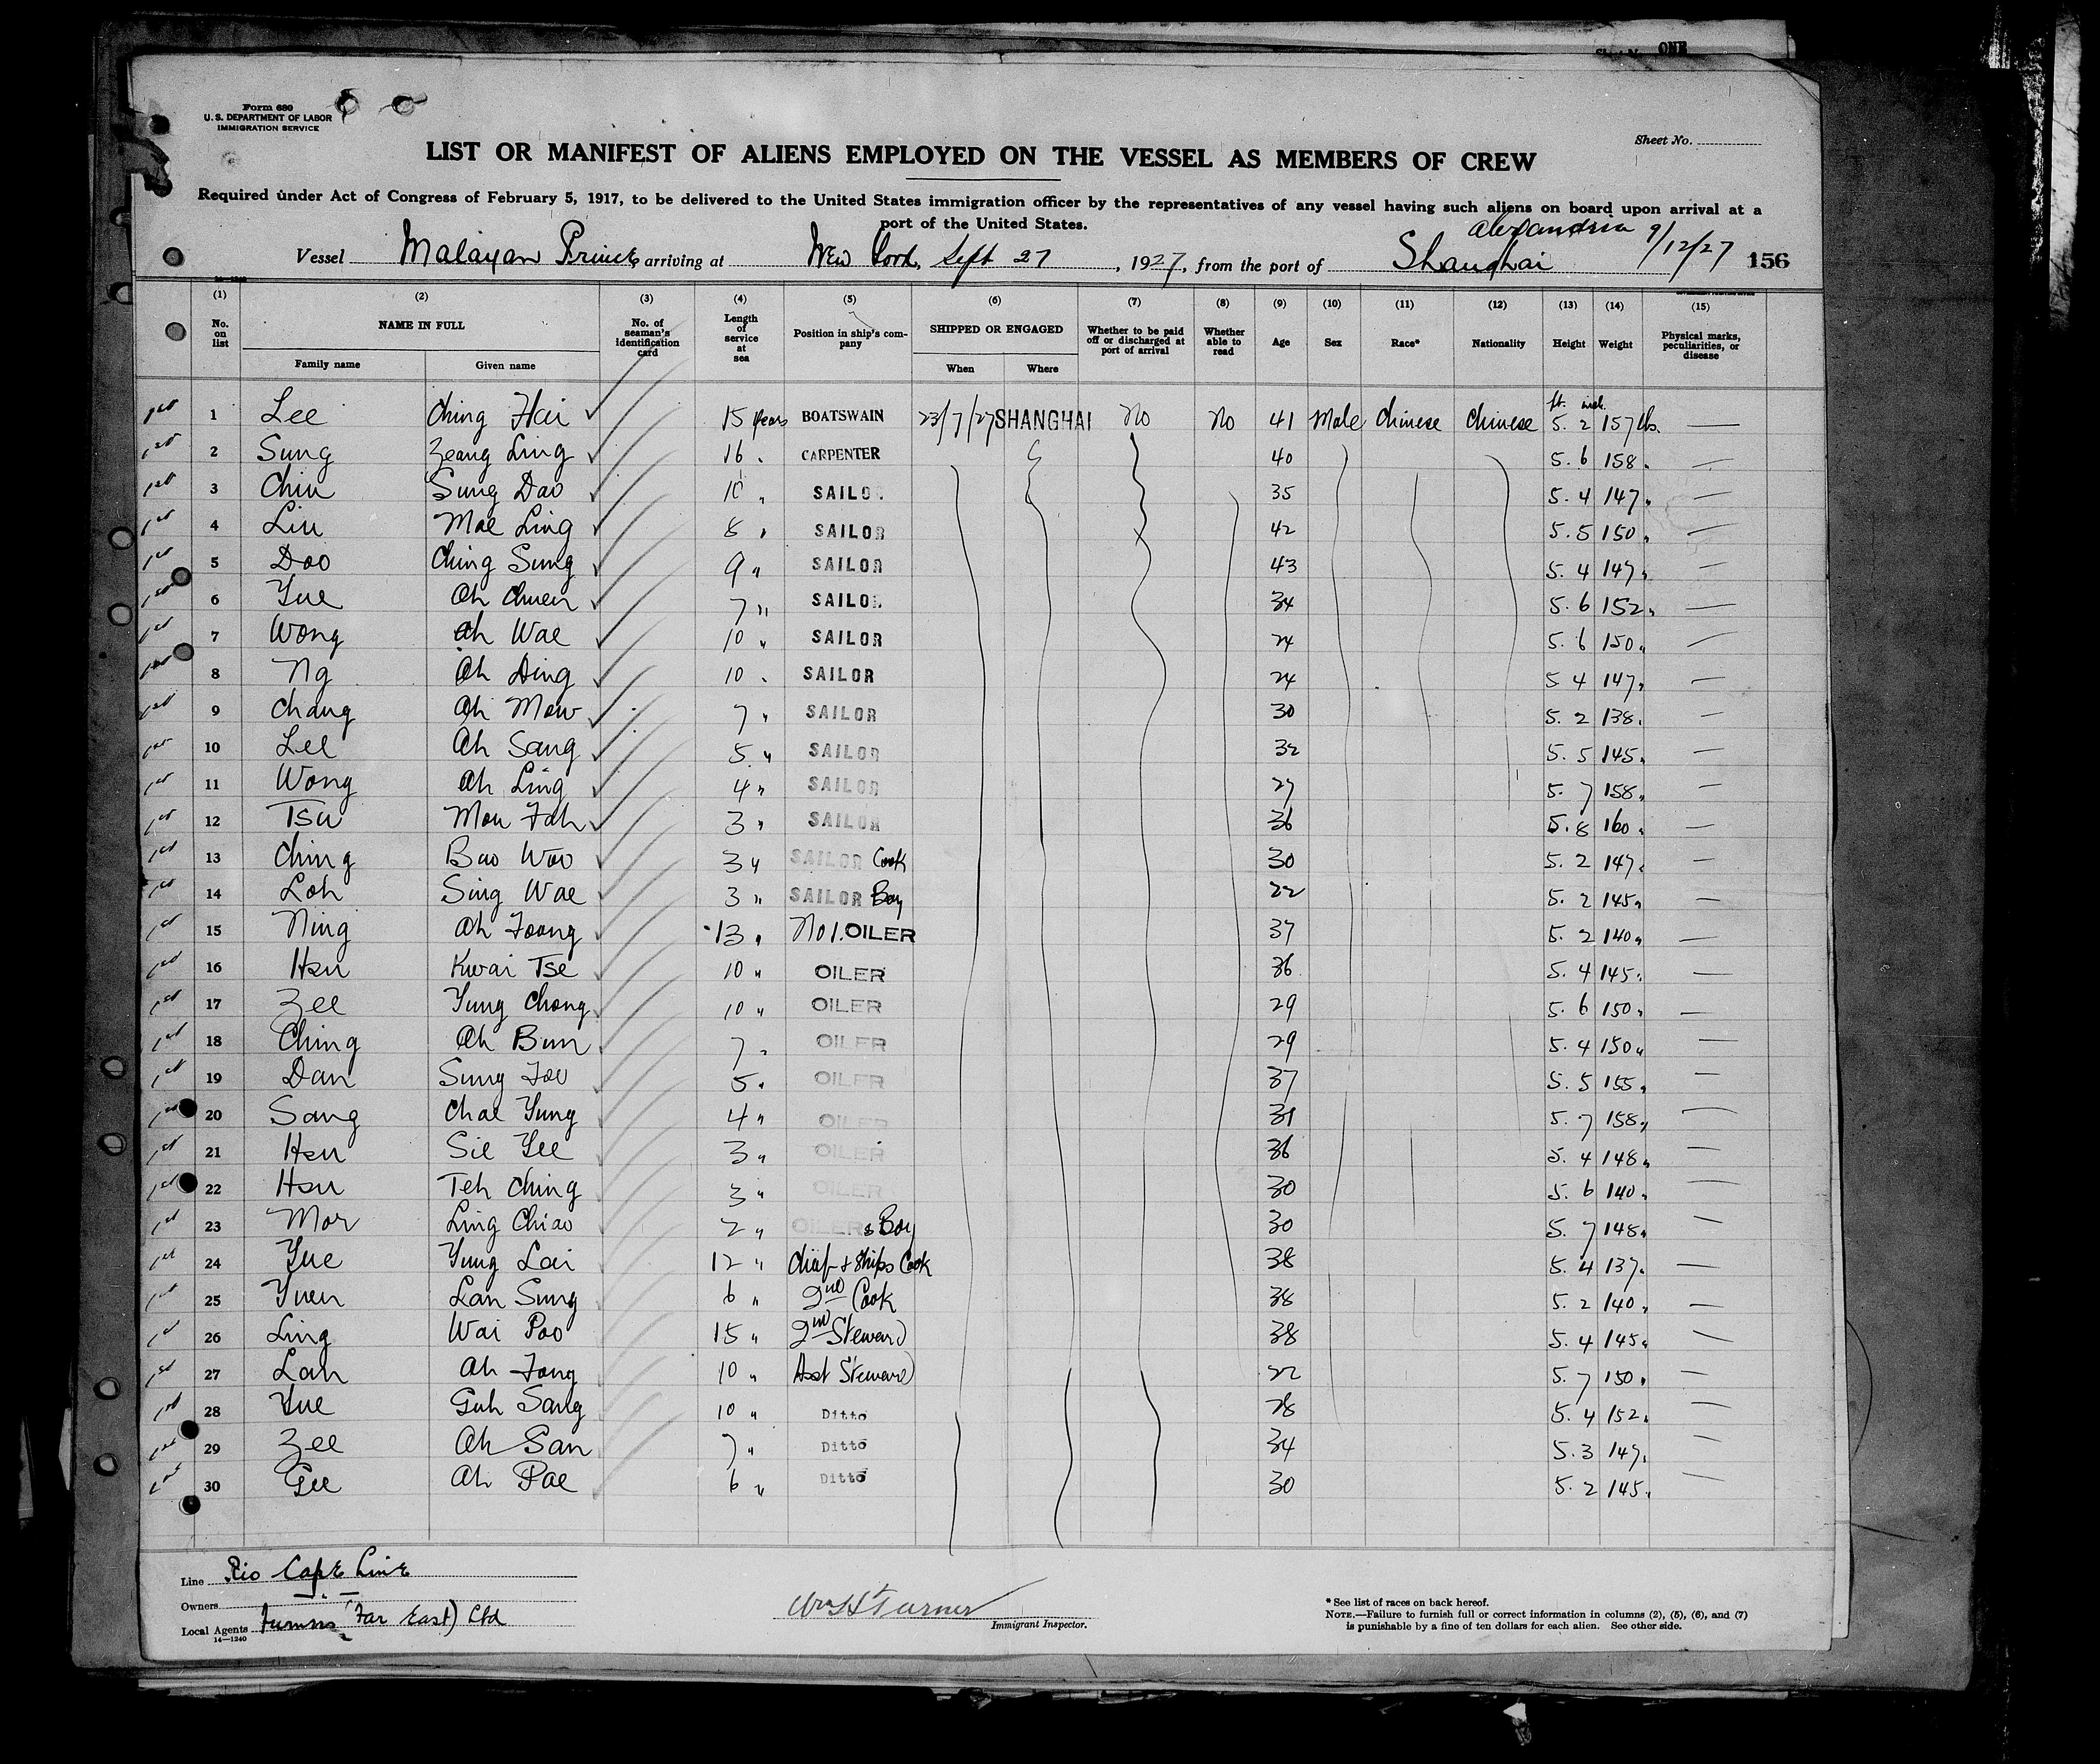 Sheet No. ONE
Form 680
U. S. DEPARTMENT OF LABOR
IMMIGRATION SERVICE
Sheet No.
LIST OR MANIFEST OF ALIENS EMPLOYED ON THE VESSEL AS MEMBERS OF CREW
Required under Act of Congress of February 5, 1917, to be delivered to the United States immigration officer by the representatives of any vessel having such aliens on board upon arrival at a
port of the United States.
Alexandria 9/12/27
Vessel Malayan Prince, arriving at New York, Sept 27, 1927, from the port of Shanghai 156
(1) (2) (3) (4) (5) (6) (7) (8) (9) (10) (11) (12) (13) (14) (15)
No. on list NAME IN FULL No. of seaman's identification card Length of service at sea Position in ship's company SHIPPED OR ENGAGED Whether to be paid off or discharged at port of arrival Whether able to read Age Sex Race* Nationality Height Weight Physical marks, peculiarities, or disease
Family name Given name When Where
ft. inch.
1 Lee Ching Hai 15 years BOATSWAIN 23/7/27 SHANGHAI No No 41 Male Chinese Chinese 5. 2 157 lbs. —
2 Sung Zeang Ling 16 " CARPENTER 40 5. 6 158 " —
3 Chiu Sung Dao 10 " SAILOR 35 5. 4 147 " —
4 Liu Moe Ling 8 " SAILOR 42 5. 5 150 " —
5 Doo Ching Sung 9 " SAILOR 43 5. 4 147 " —
6 Yue Ah Chuen 7 " SAILOR 34 5. 6 152 " —
7 Wong Ah Wae 10 " SAILOR 24 5. 6 150 " —
8 Ng Ah Ding 10 " SAILOR 24 5 4 147 " —
9 Chang Ah Mew 7 " SAILOR 30 5. 2 138 " —
10 Lee Ah Sang 5 " SAILOR 32 5. 5 145 " —
11 Wong Ah Ling 4 " SAILOR 27 5. 7 158 " —
12 Tsu Mou Fah 3 " SAILOR 36 5. 8 160 " —
13 Ching Bao Woo 3 " SAILOR Cook 30 5. 2 147 " —
14 Loh Sing Wae 3 " SAILOR Boy 22 5. 2 145 " —
15 Ning Ah Foong 13 " No 1. OILER 37 5. 2 140 " —
16 Hsu Kwai Tse 10 " OILER 36 5. 4 145 " —
17 Zee Yung Chong 10 " OILER 29 5. 6 150 " —
18 Ching Ah Bun 7 " OILER 29 5. 4 150 " —
19 Dan Sung Foo 5 " OILER 37 5. 5 155 " —
20 Sang Chae Yung 4 " OILER 31 5. 7 158 " —
21 Hsu Sie Yee 3 " OILER 36 5. 4 148 " —
22 Hsu Teh Ching 3 " OILER 30 5. 6 140 " —
23 Mor Ling Chiao 2 " OILER s Boy 30 5. 7 148 " —
24 Yue Yung Lai 12 " Chief & Ships Cook 38 5. 4 137 " —
25 Yuen Lan Sung 6 " 2nd Cook 38 5. 2 140 " —
26 Ling Wai Poo 15 " 2nd Steward 38 5. 4 145 " —
27 Lah Ah Fong 10 " Asst Steward 22 5. 7 150 " —
28 Yue Guh Sang 10 " Ditto 28 5. 4 152 " —
29 Zee Ah San 7 " Ditto 34 5. 3 147 " —
30 Gee Ah Pae 6 " Ditto 30 5. 2 145 " —
Line Rio Cape Line
Owners
Local Agents Furness (Far East) Ltd
14—1240
Wm H Turner
Immigrant Inspector.
* See list of races on back hereof.
NOTE.—Failure to furnish full or correct information in columns (2), (5), (6), and (7)
is punishable by a fine of ten dollars for each alien. See other side.